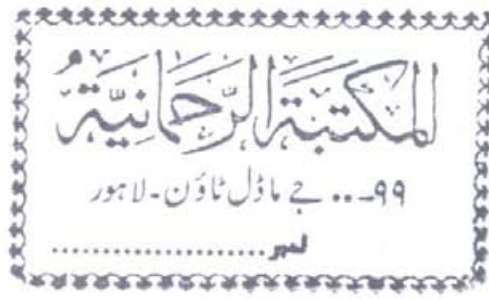 المكتبة الرحمانية
۹۹-۰۰ جے ماڈل ٹاؤن - لاہور
نمبر....................